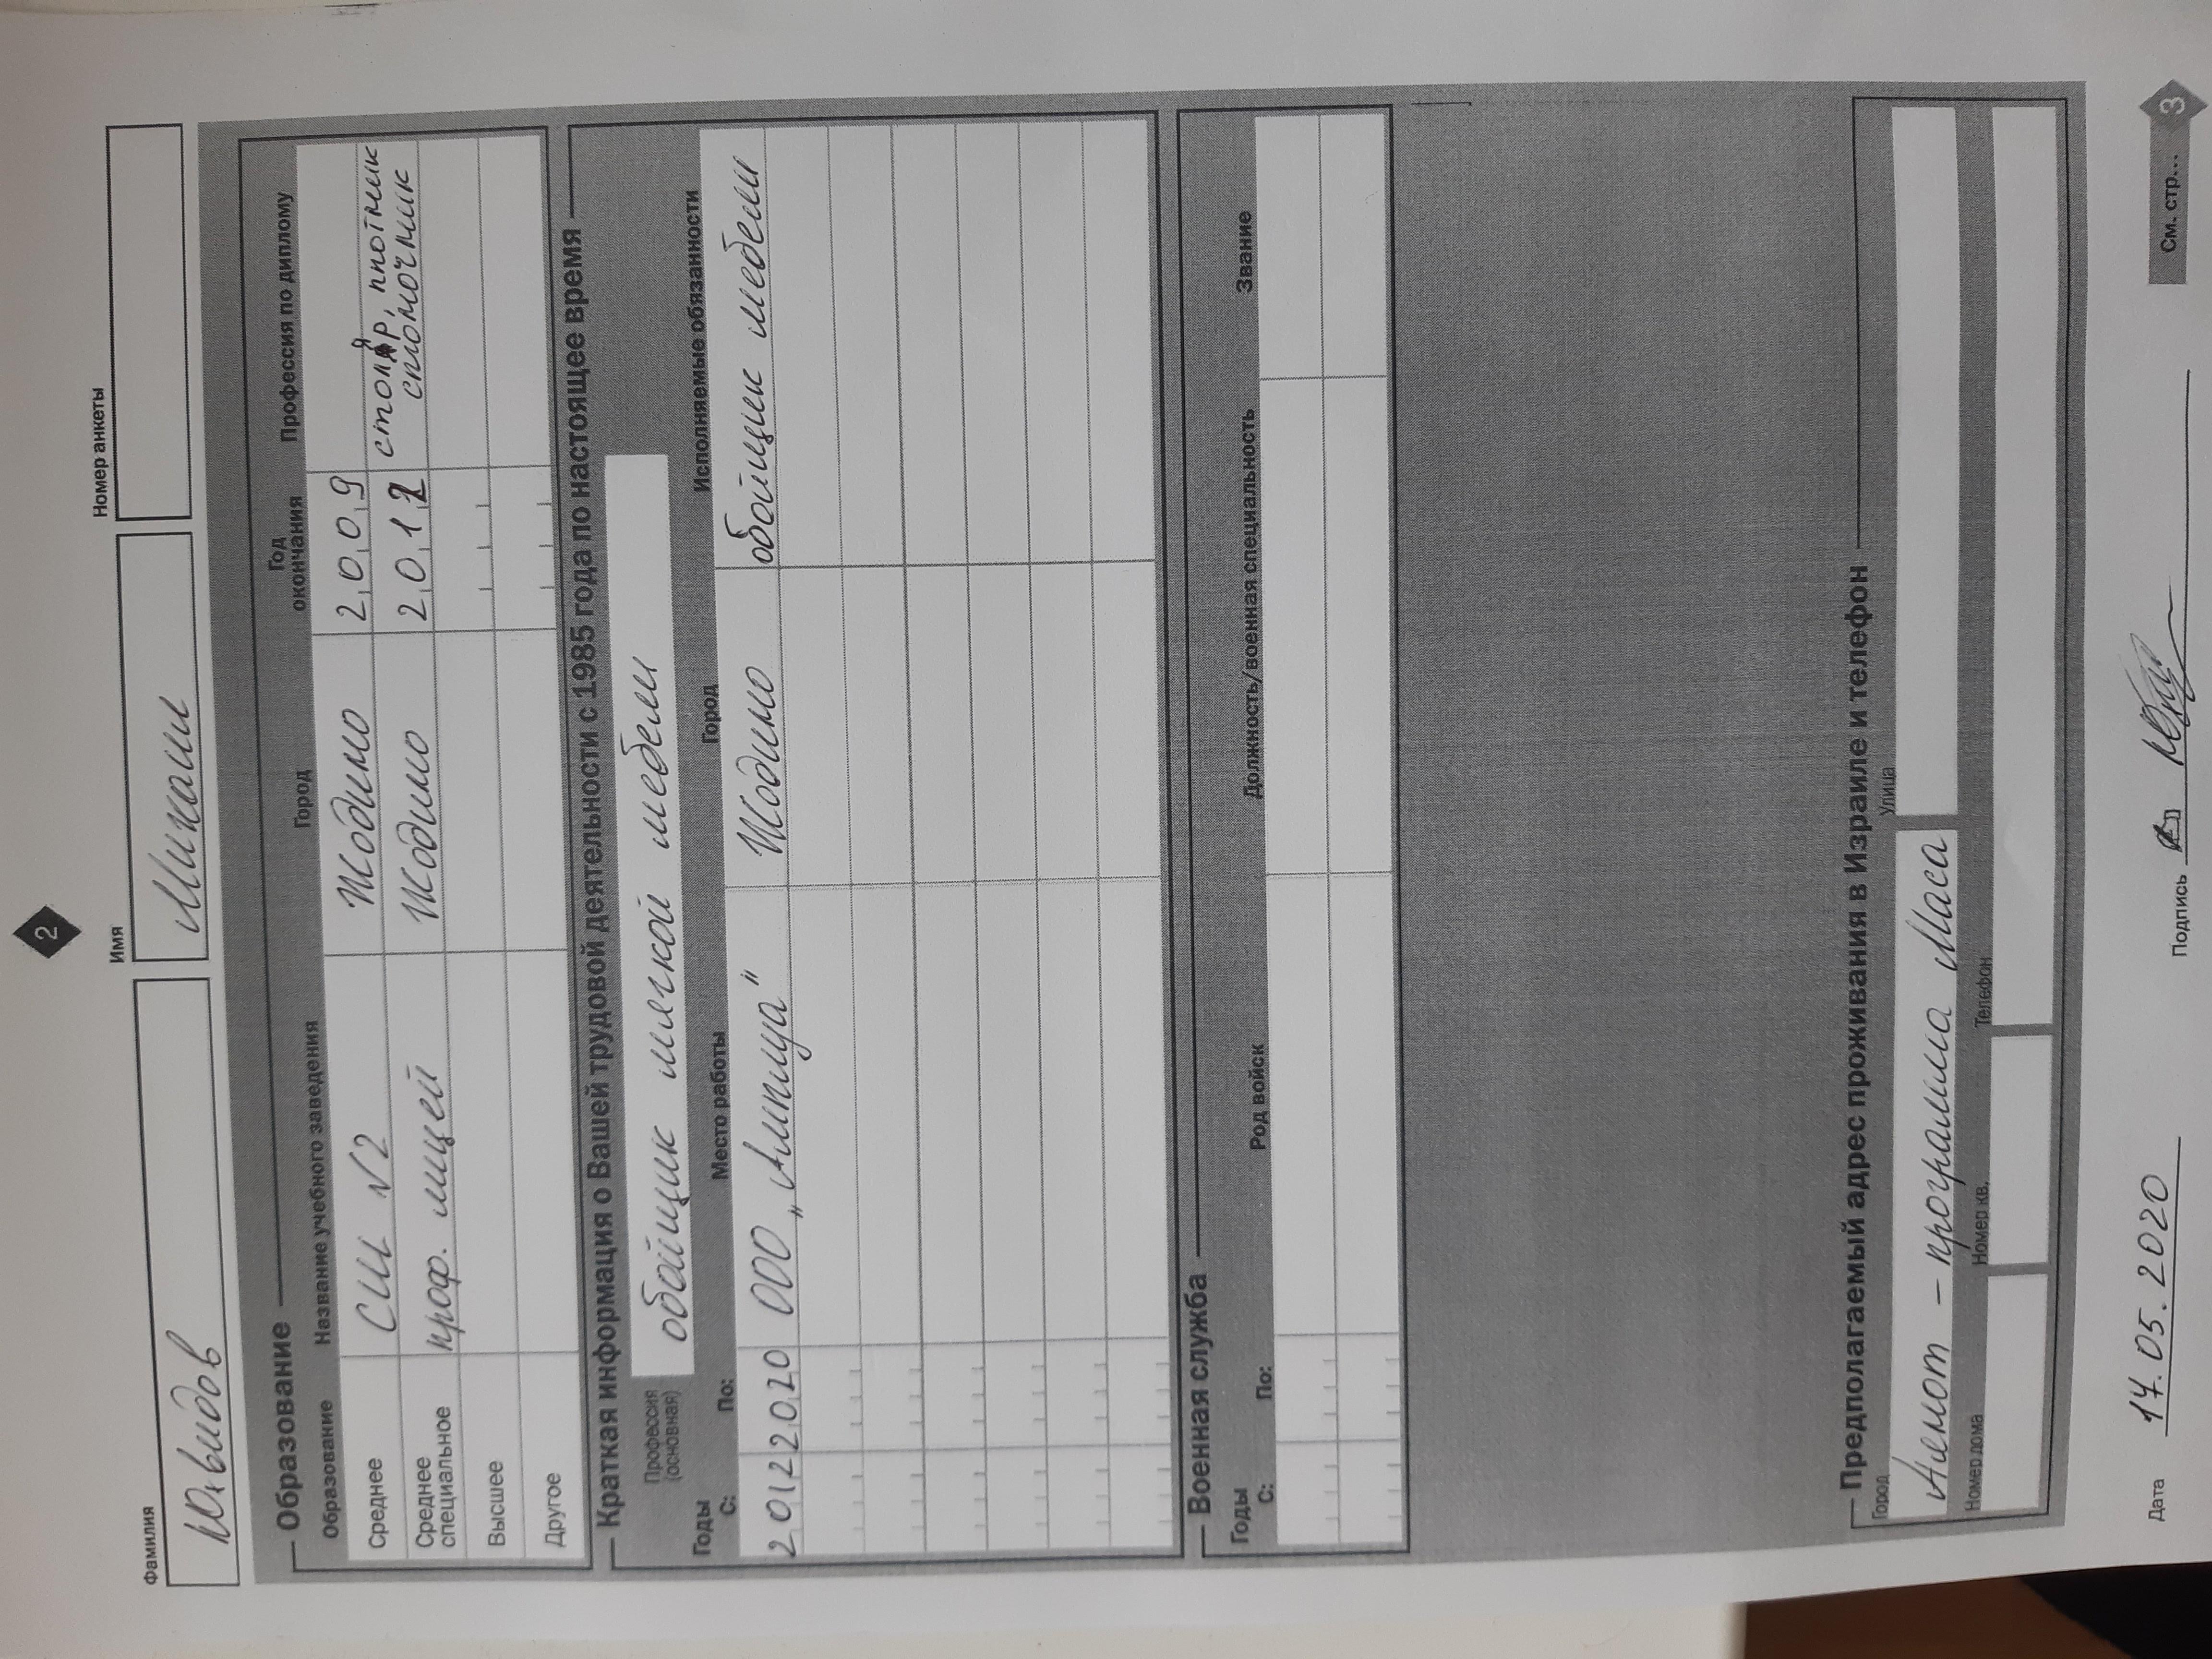 2
Фамилия Имя Номер анкеты
Юхвидов Михаил
Образование
Образование Название учебного заведения Город Год окончания Профессия по диплому
Среднее СШ №2 Жодино 2009
Среднее специальное проф. лицей Жодино 2012 столяр, плотник станочник
Высшее
Другое
Краткая информация о Вашей трудовой деятельности с 1985 года по настоящее время
Профессия (основная) обойщик мягкой мебели
Годы
С: По: Место работы Город Исполняемые обязанности
2012 2020 ООО „Амплуа" Жодино обойщик мебели
Военная служба
Годы
С: По: Род войск Должность/военная специальность Звание
Предполагаемый адрес проживания в Израиле и телефон
Город Улица
– программа Маса
Номер дома Номер кв. Телефон
Дата 17.05.2020 Подпись
См. стр... 3